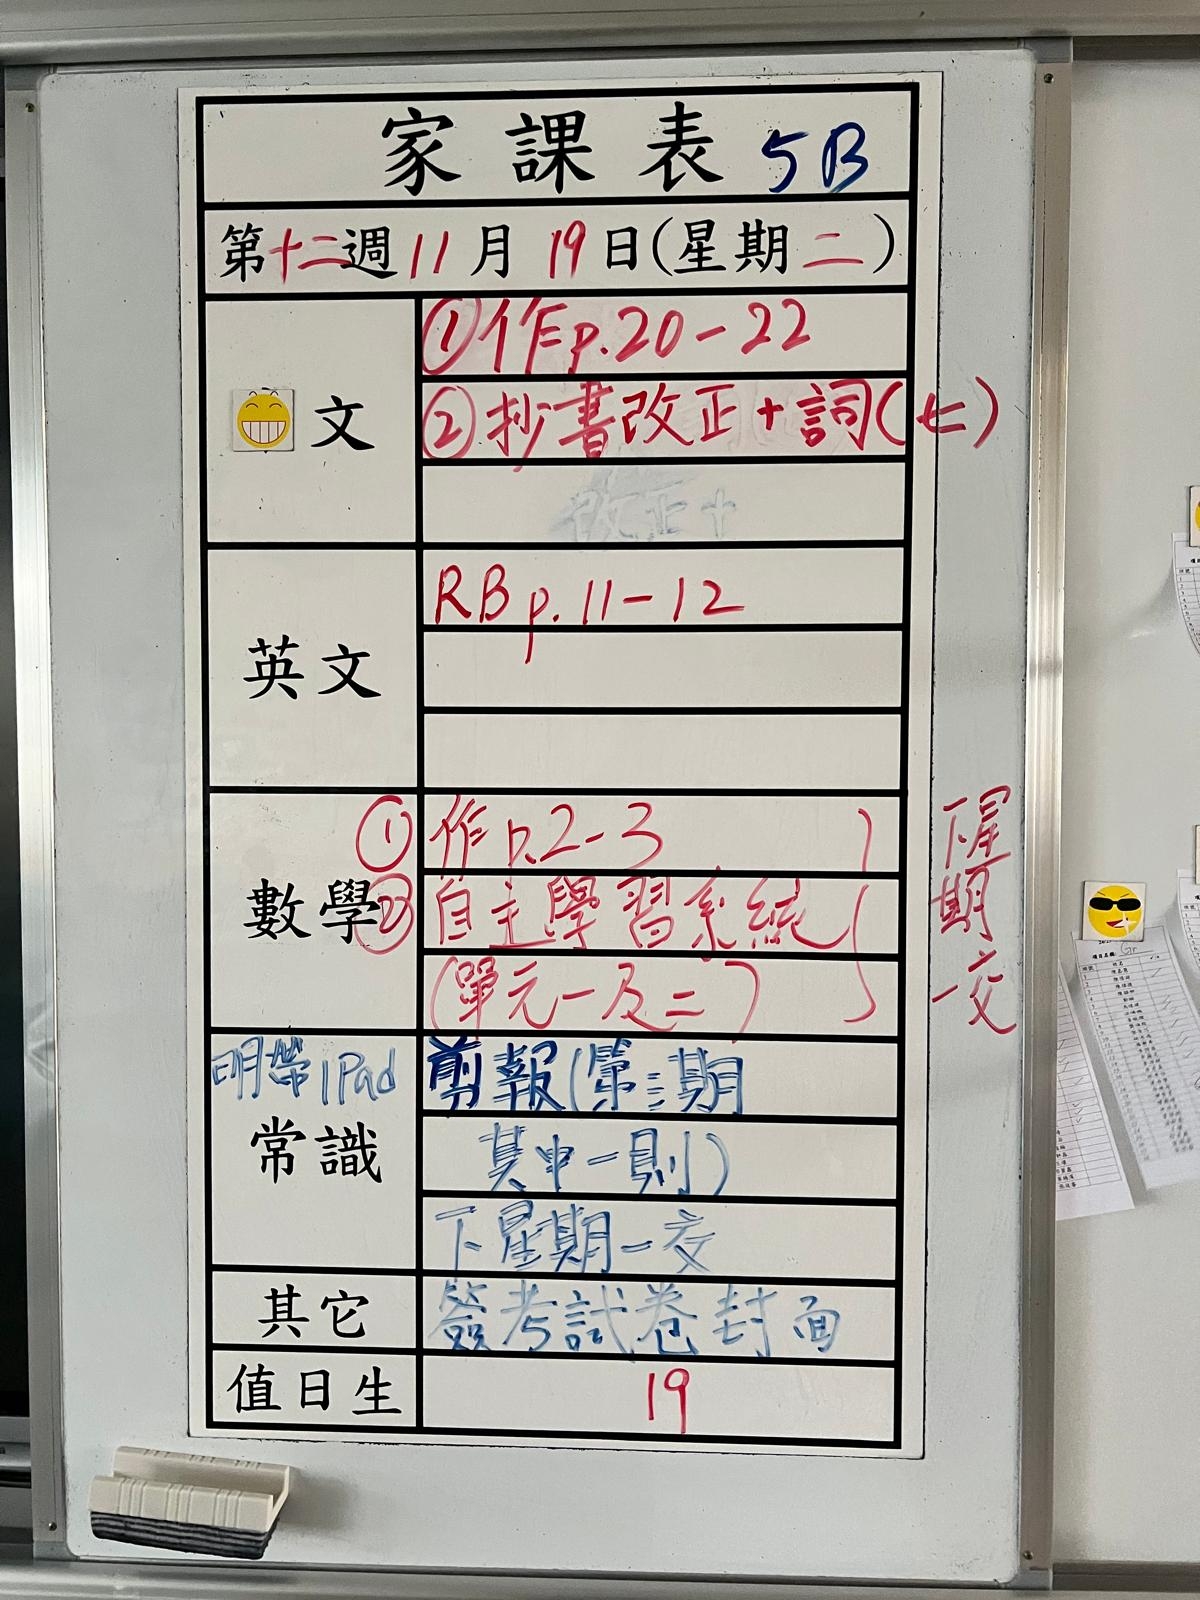 家課表 5B
第十二週 11月19日(星期二)
文
①作p.20-22
②抄書改正+詞(七)
改正+
英文
RB p.11-12
數學
①作p.2-3
②自主學習系統
(單元一及二)
下星期一交
明帶iPad
常識
剪報(第三期
其中一則)
下星期一交
其它
簽考試卷封面
值日生
19